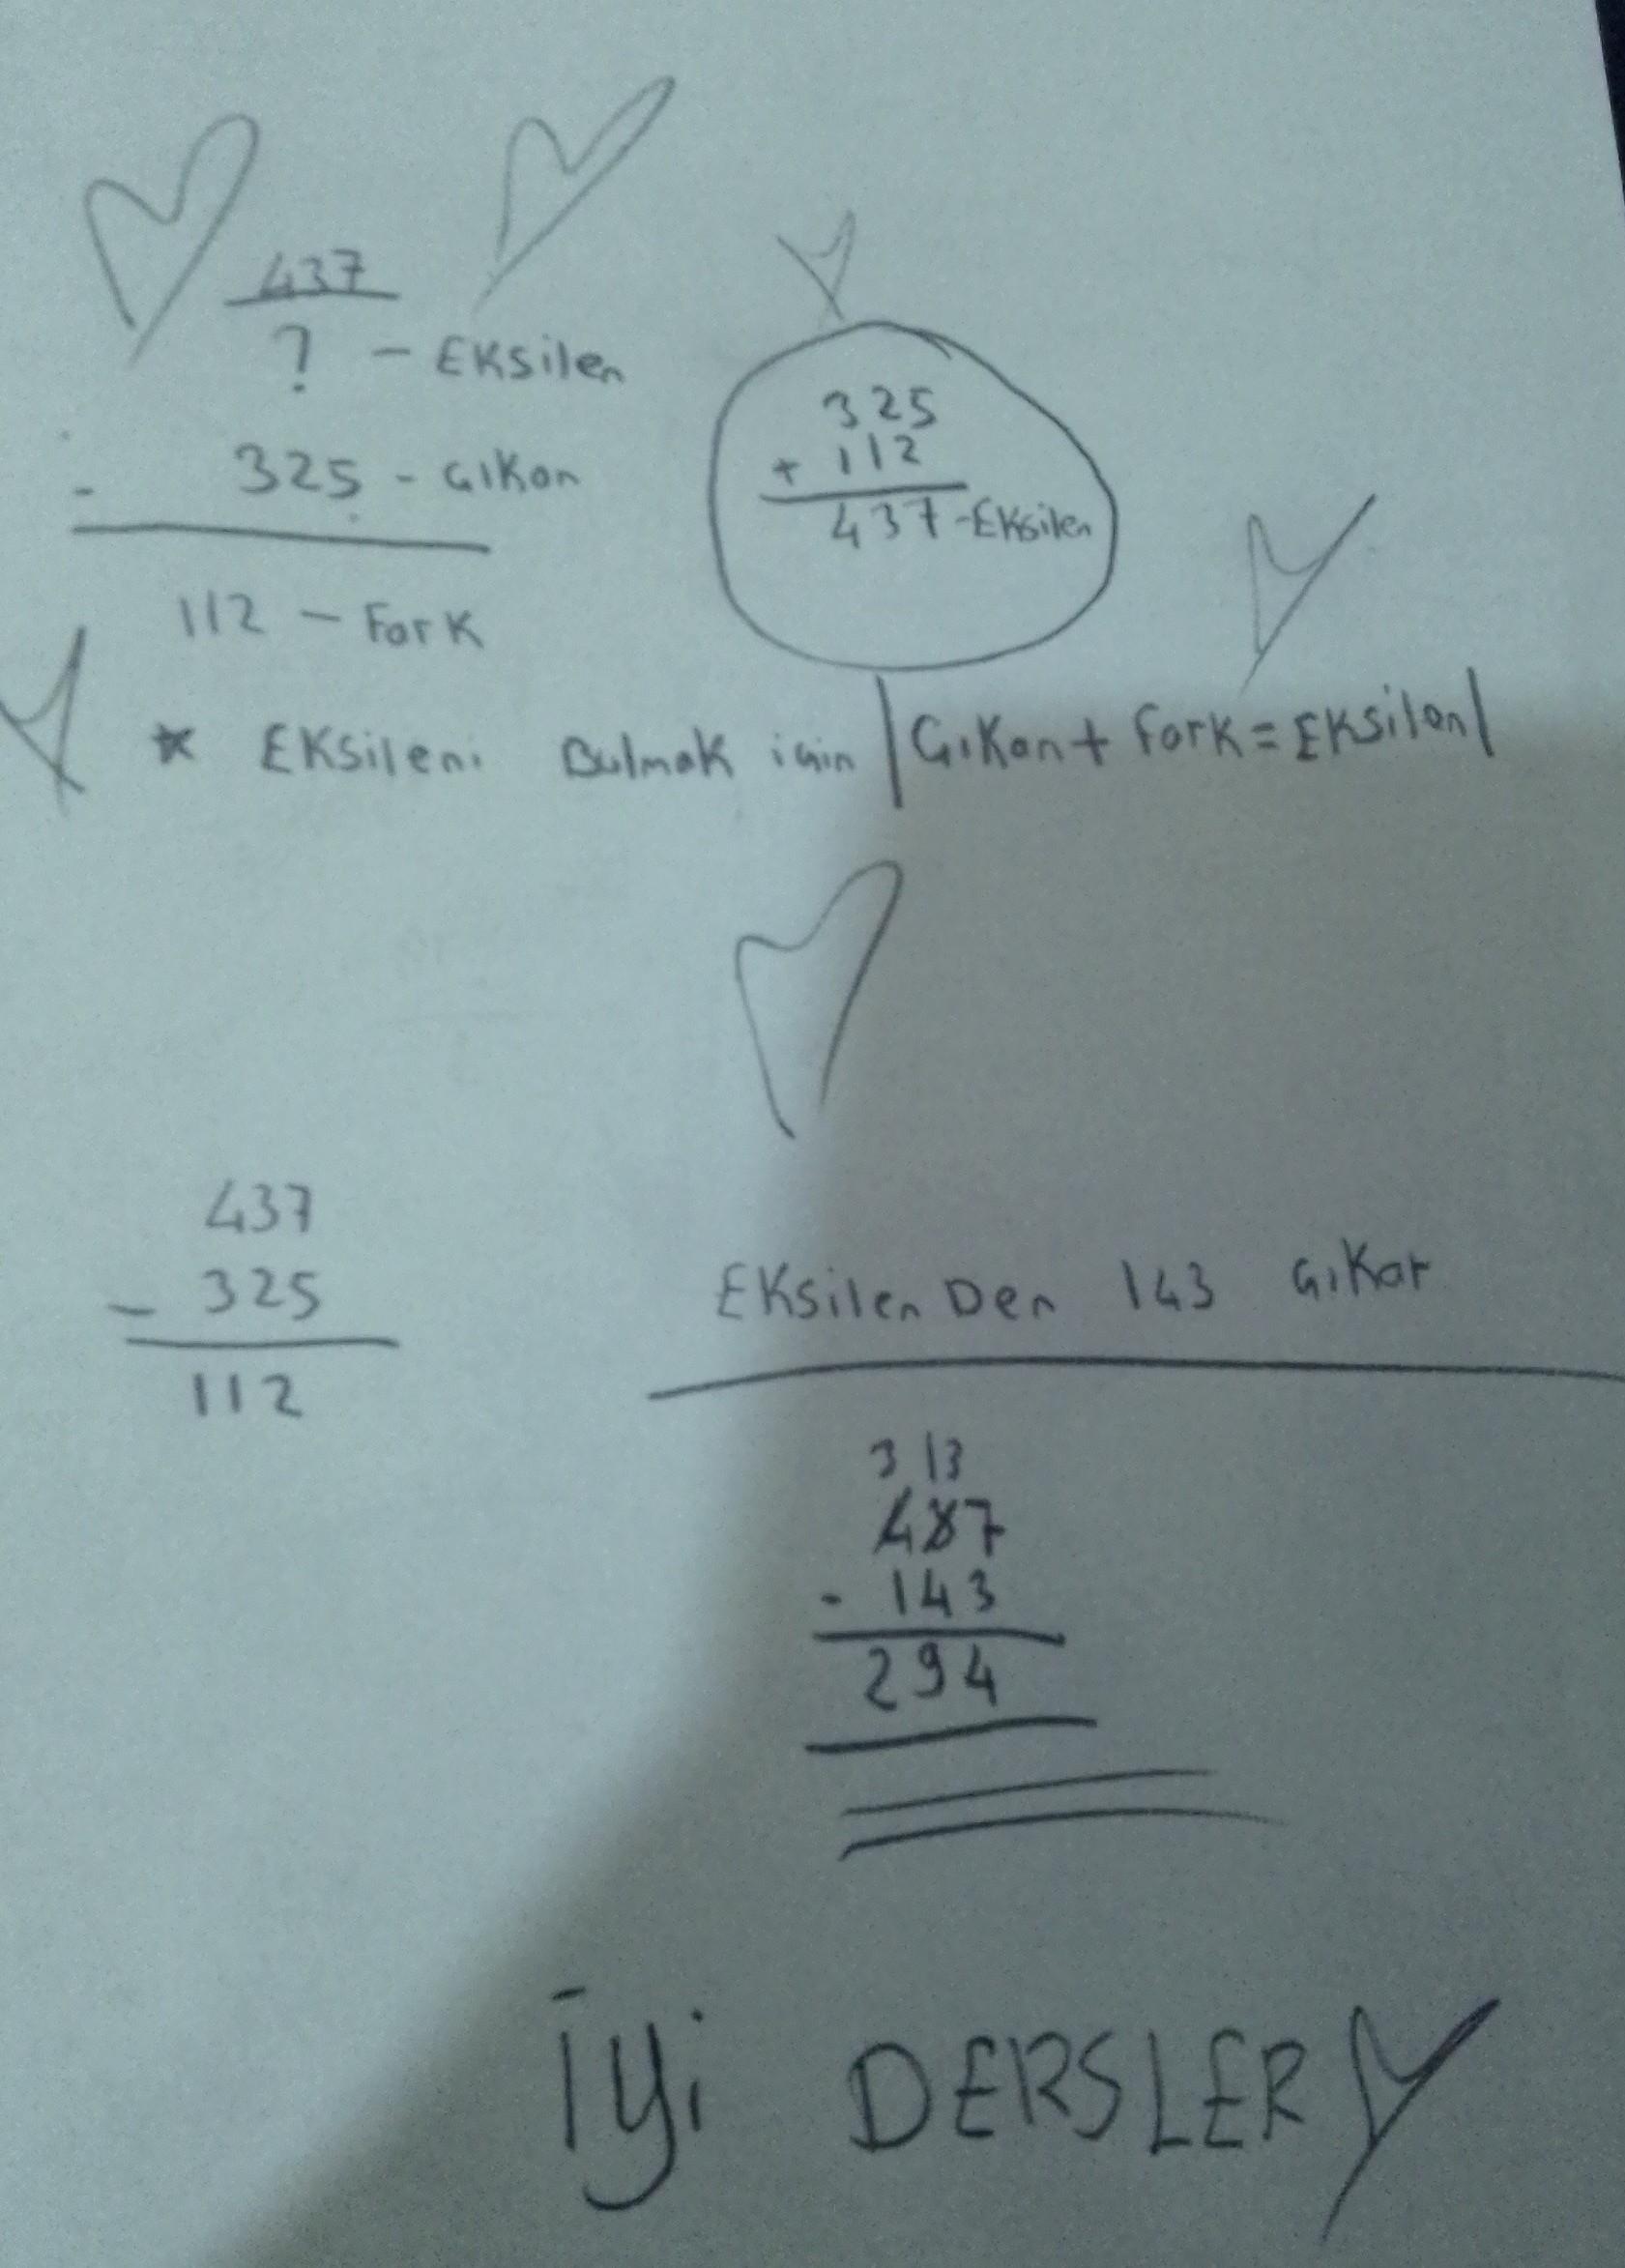 437
? - Eksilen
- 325 - Çıkan
112 - Fark
325
+ 112
437 - Eksilen
* Eksileni Bulmak için |Çıkan + Fark = Eksilen|
437
- 325
112
EksilenDen 143 Çıkar
3 13
437
- 143
294
İyi DERSLER